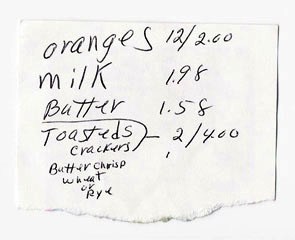 oranges 12/2.00
milk 1.98
Butter 1.58
Toasteds 2/4.00
crackers
Butter chrisp
wheat
or
Rye